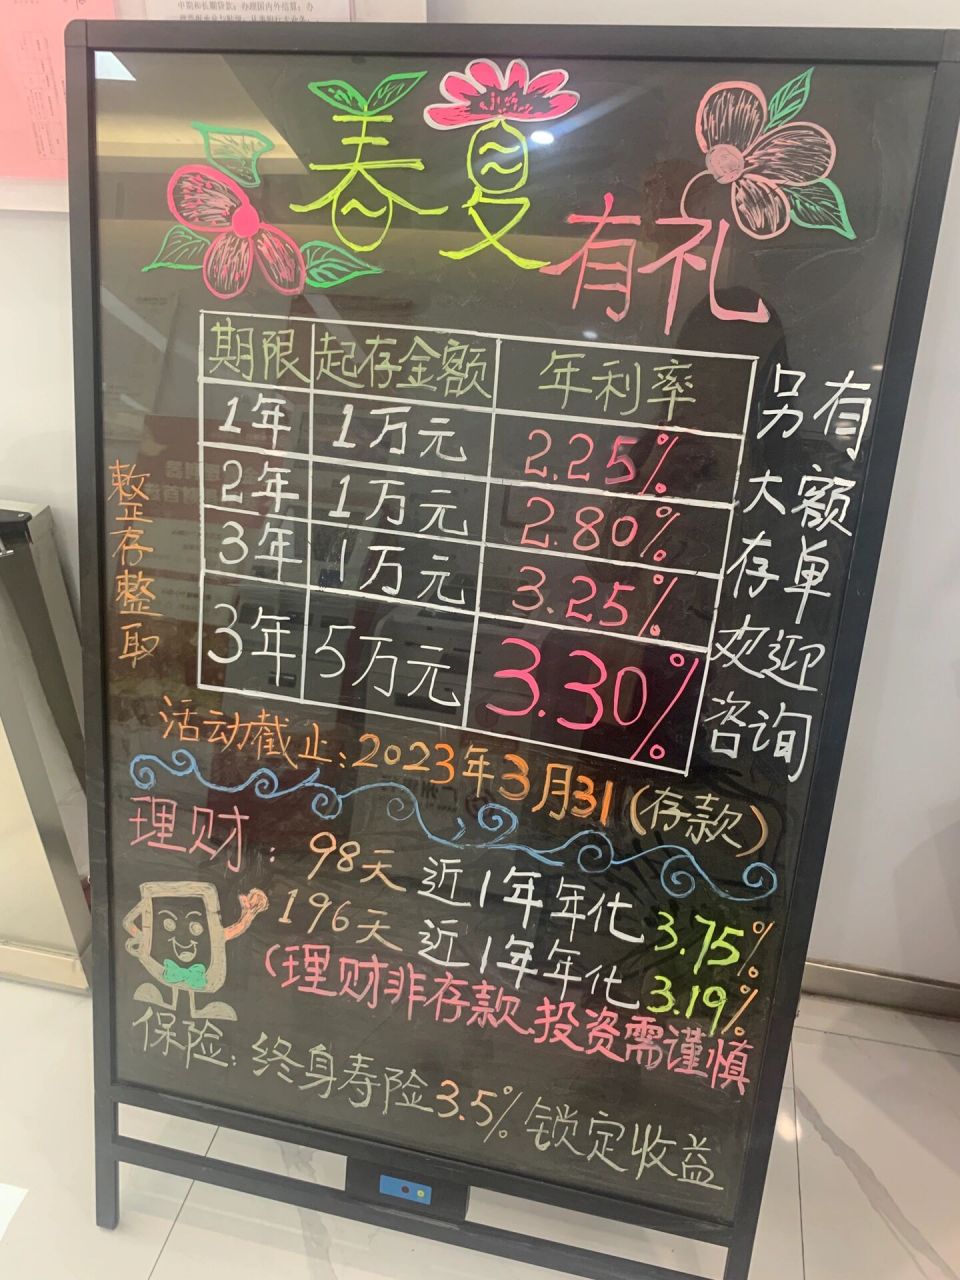 中期和长期贷款;办理国内外结算;办
春夏有礼
期限 起存金额 年利率
1年 1万元 2.25%
2年 1万元 2.80%
3年 1万元 3.25%
3年 5万元 3.30%
整存整取
另有
大额
存单
欢迎
咨询
活动截止:2023年3月31(存款)
理财:98天 近1年年化3.75%
196天 近1年年化3.19%
(理财非存款.投资需谨慎
保险:终身寿险3.5%锁定收益